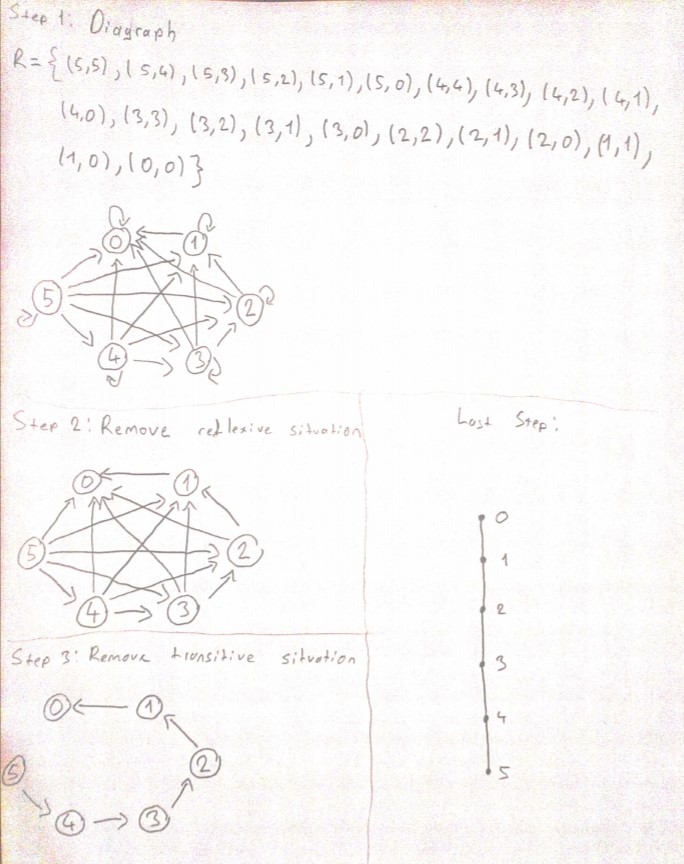 Step 1: Diagraph
R = { (5,5), (5,4), (5,3), (5,2), (5,1), (5,0), (4,4), (4,3), (4,2), (4,1),
(4,0), (3,3), (3,2), (3,1), (3,0), (2,2), (2,1), (2,0), (1,1),
(1,0), (0,0) }
0 1
5 2
4 3
Step 2: Remove reflexive situation
0 1
5 2
4 3
Step 3: Remove transitive situation
0 1
2
5
4 3
Last Step:
0
1
2
3
4
5